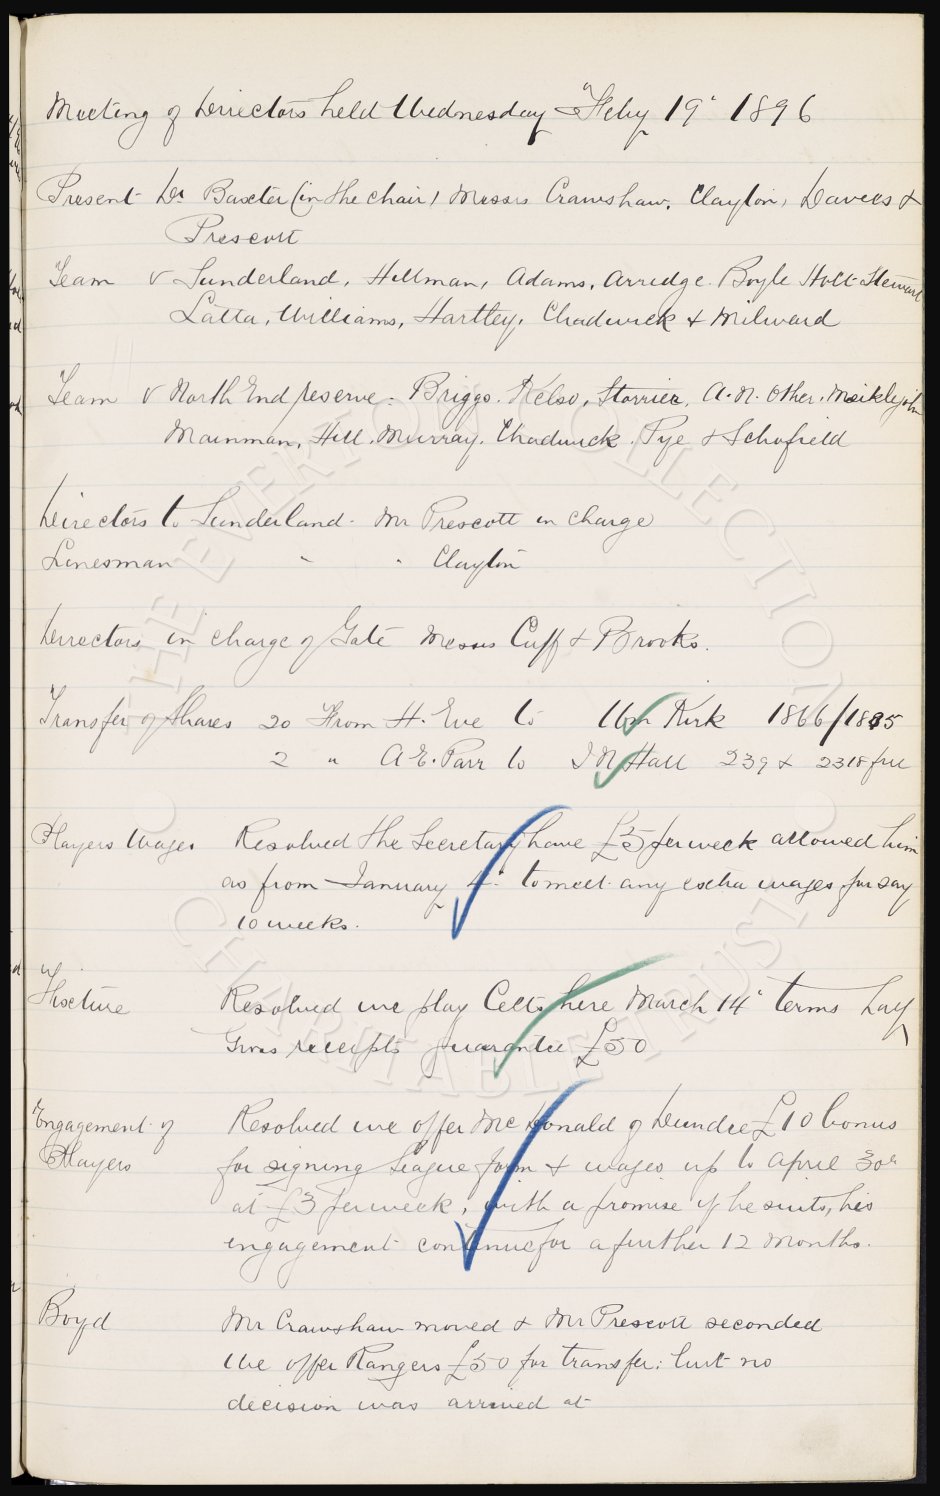 Meeting of Directors held Wednesday Feby 19th 1896
Present Dr Baxter (in the chair) Messrs Crawshaw, Clayton, Davies &
Prescott
Team v Sunderland, Hillman, Adams, Arridge. Boyle Holt Stewart
Latta, Williams, Hartley, Chadwick & Milward
Team v North End reserve. Briggs. Kelso, Storrier, A.N. Other. Meiklejohn
Mainman, Hill. Murray. Chadwick. Pye & Schofield
Directors to Sunderland. Mr Prescott in charge
Linesman " " Clayton
Directors in charge of Gate Messrs Cuff & Brooks.
Transfer of Shares 20 From H. Eve to Wm Kirk 1866/1885
2 " A.E. Parr to J N Hall 239 & 2318 full
Players Wages Resolved the Secretary have £5 per week allowed him
as from January 4th to meet any extra wages for say
10 weeks.
Fixture Resolved we play Celts here March 14th terms half
Gross receipts guarantee £50
Engagement of Resolved we offer McDonald of Dundee £10 bonus
Players for signing League form & wages up to April 30th
at £3 per week, with a promise if he suits, his
engagement continue for a further 12 months.
Boyd Mr Crawshaw moved & Mr Prescott seconded
We offer Rangers £50 for transfer: but no
decision was arrived at
THE EVERTON COLLECTION
CHARITABLE TRUST